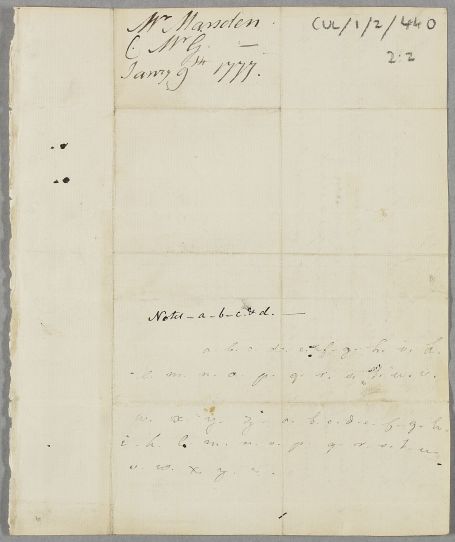 Mr Marsden.
C Mr G. —
Janry 9th 1777.
CUL/1/2/440
2:2
Notes - a - b - c & d. —
a. b. c. d. e. f. g. h. i. k.
l. m. n. o. p. q. r. s. t. u. v.
w. x. y. z. a. b. c. d. e. f. g. h.
i. k. l. m. n. o. p. q. r. s. t. u.
v. w. x. y. z.